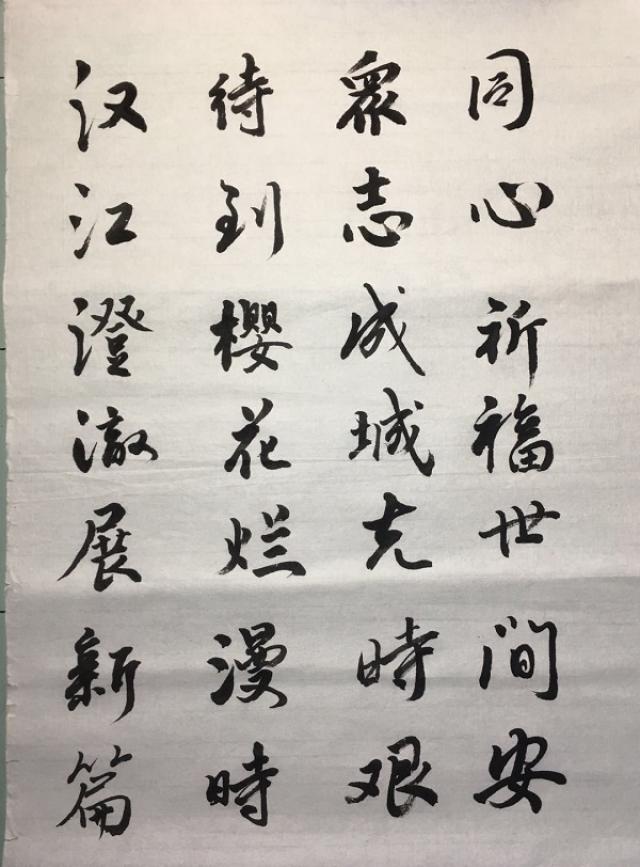 同心祈福世间安
眾志成城克時艰
待到櫻花烂漫時
汉江澄澈展新篇